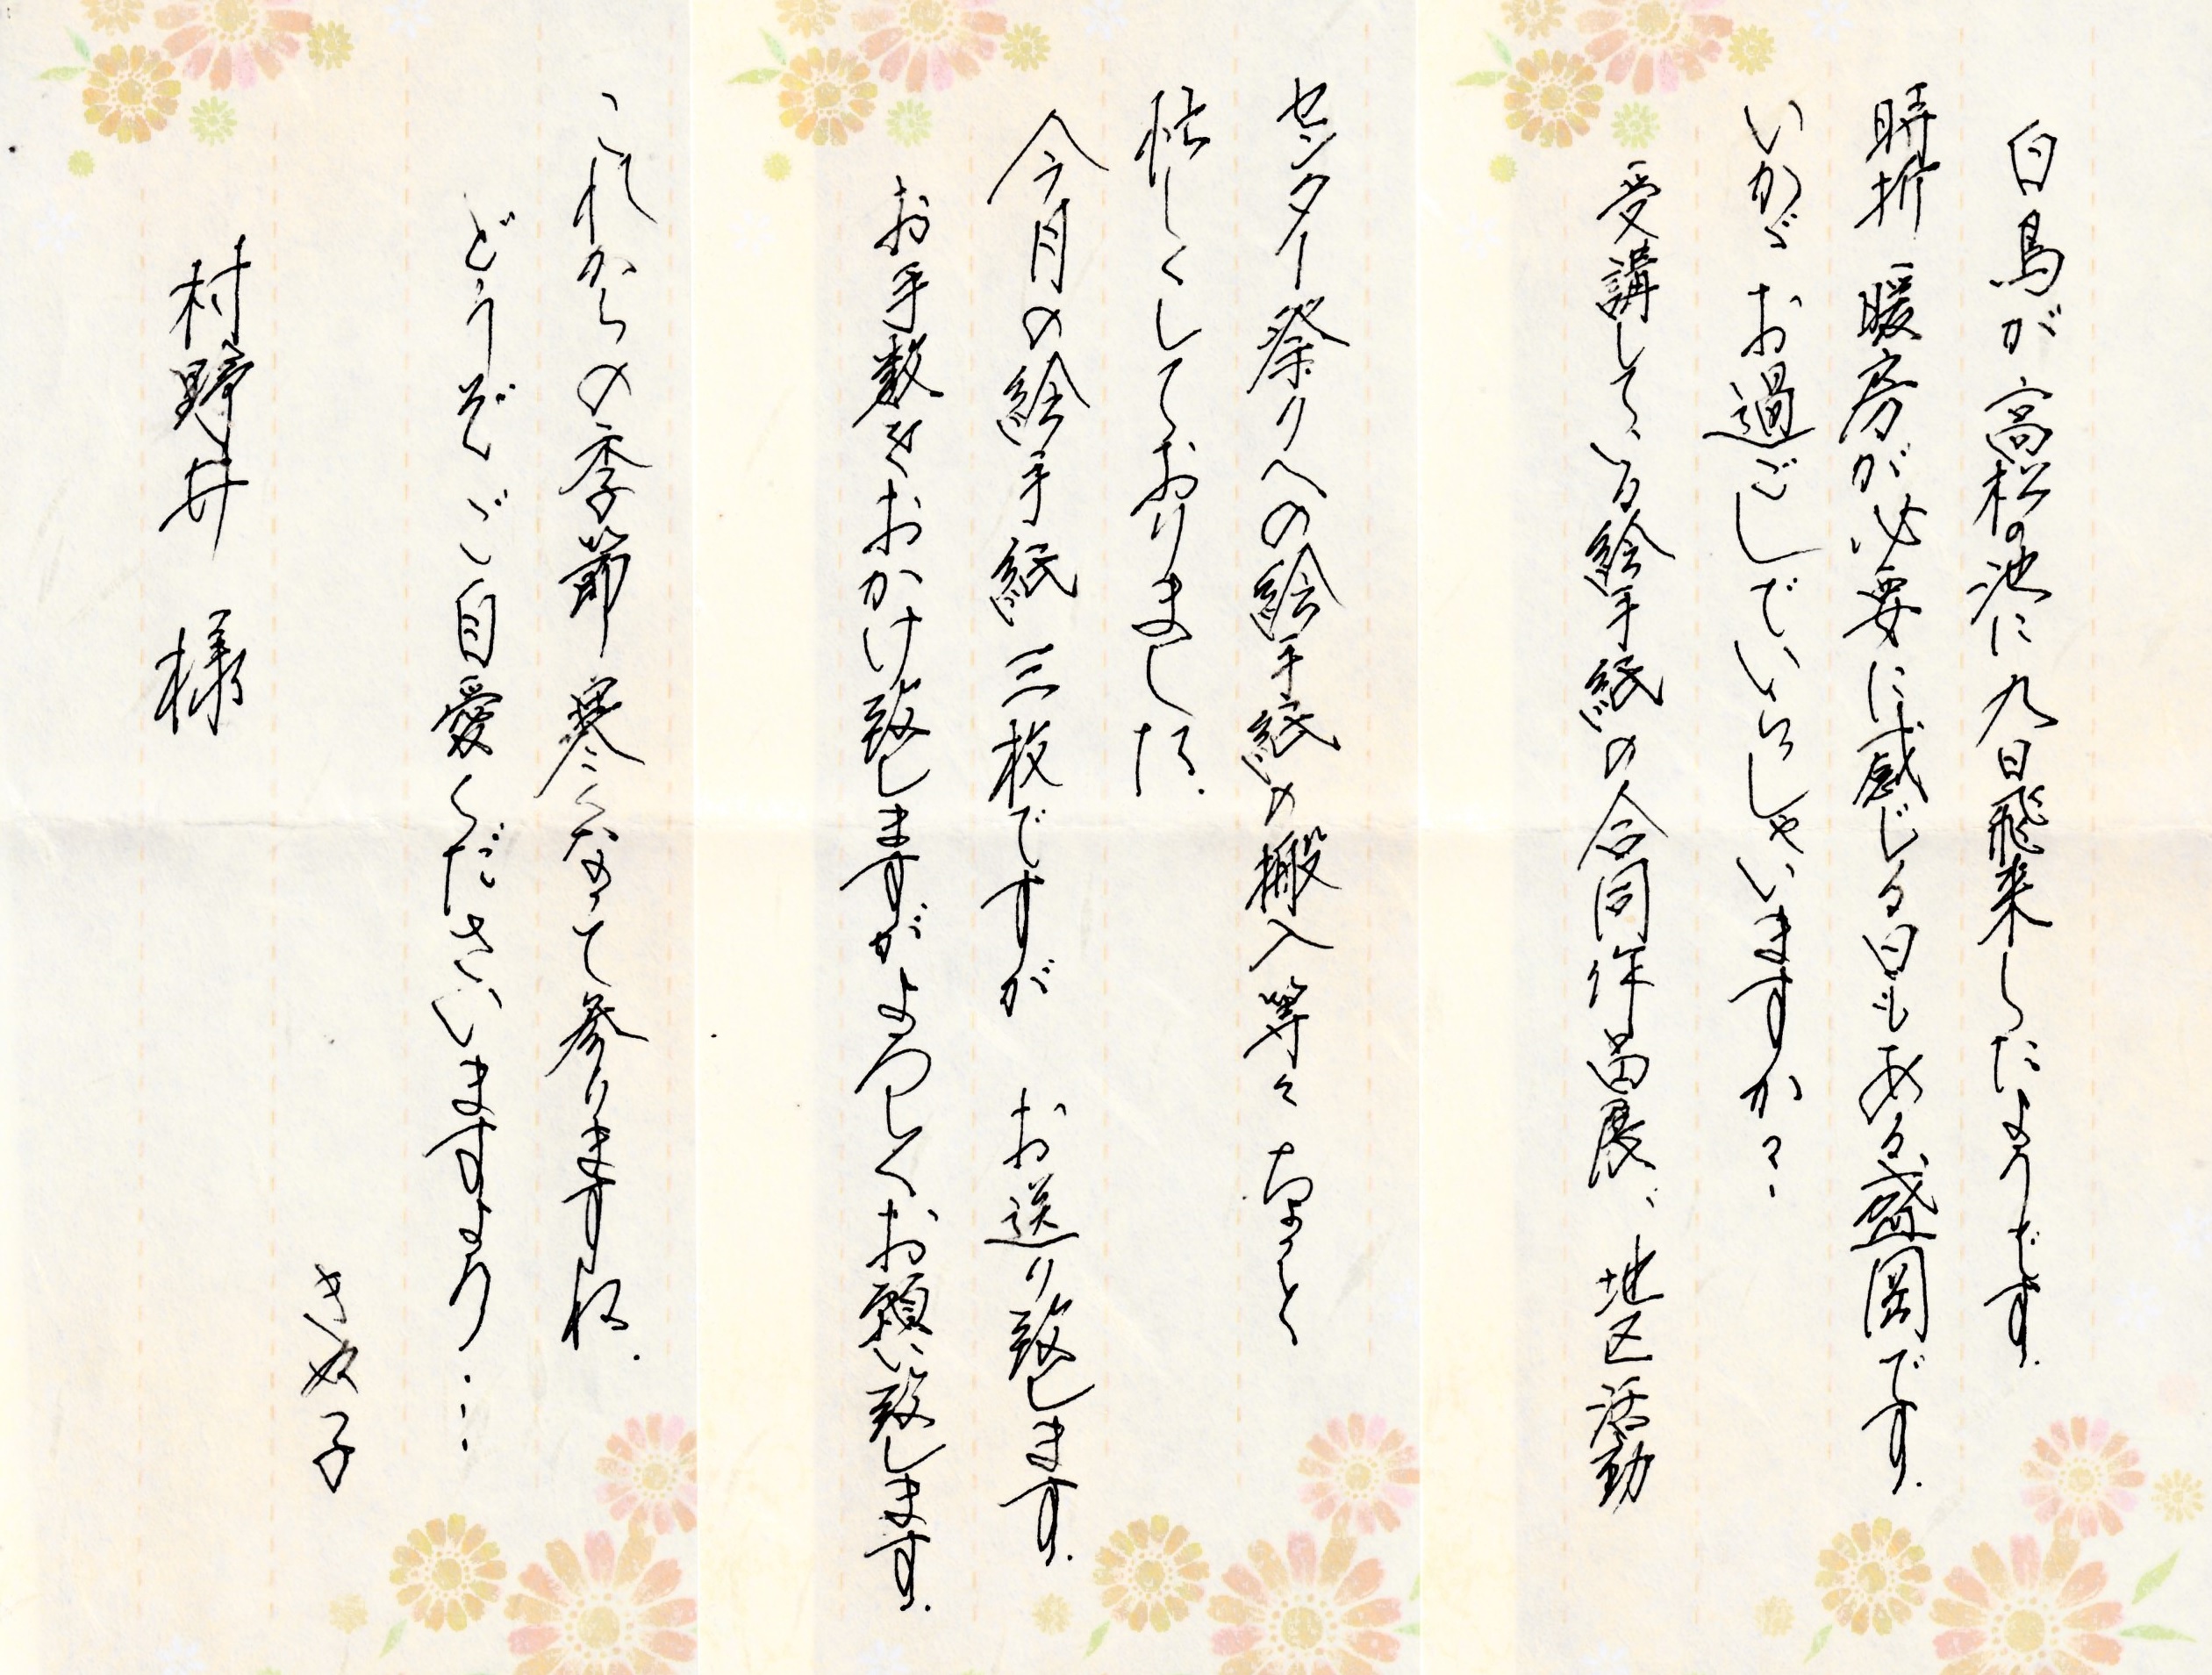 白鳥が高松の池に九日飛来したようです.
時折 暖房が必要に感じる日もある盛岡です.
いかゞお過ごしでいらしゃいますか?
受講している絵手紙の合同作品展、地区活動
センター祭りへの絵手紙の搬入等々 ちょっと
忙しくしておりました.
今月の絵手紙 三枚ですが お送り致します.
お手数をおかけ致しますがよろしくお願い致します.
これからの季節 寒くなって参りますね.
どうぞ ご自愛くださいますよう…
きぬ子
村野井 様